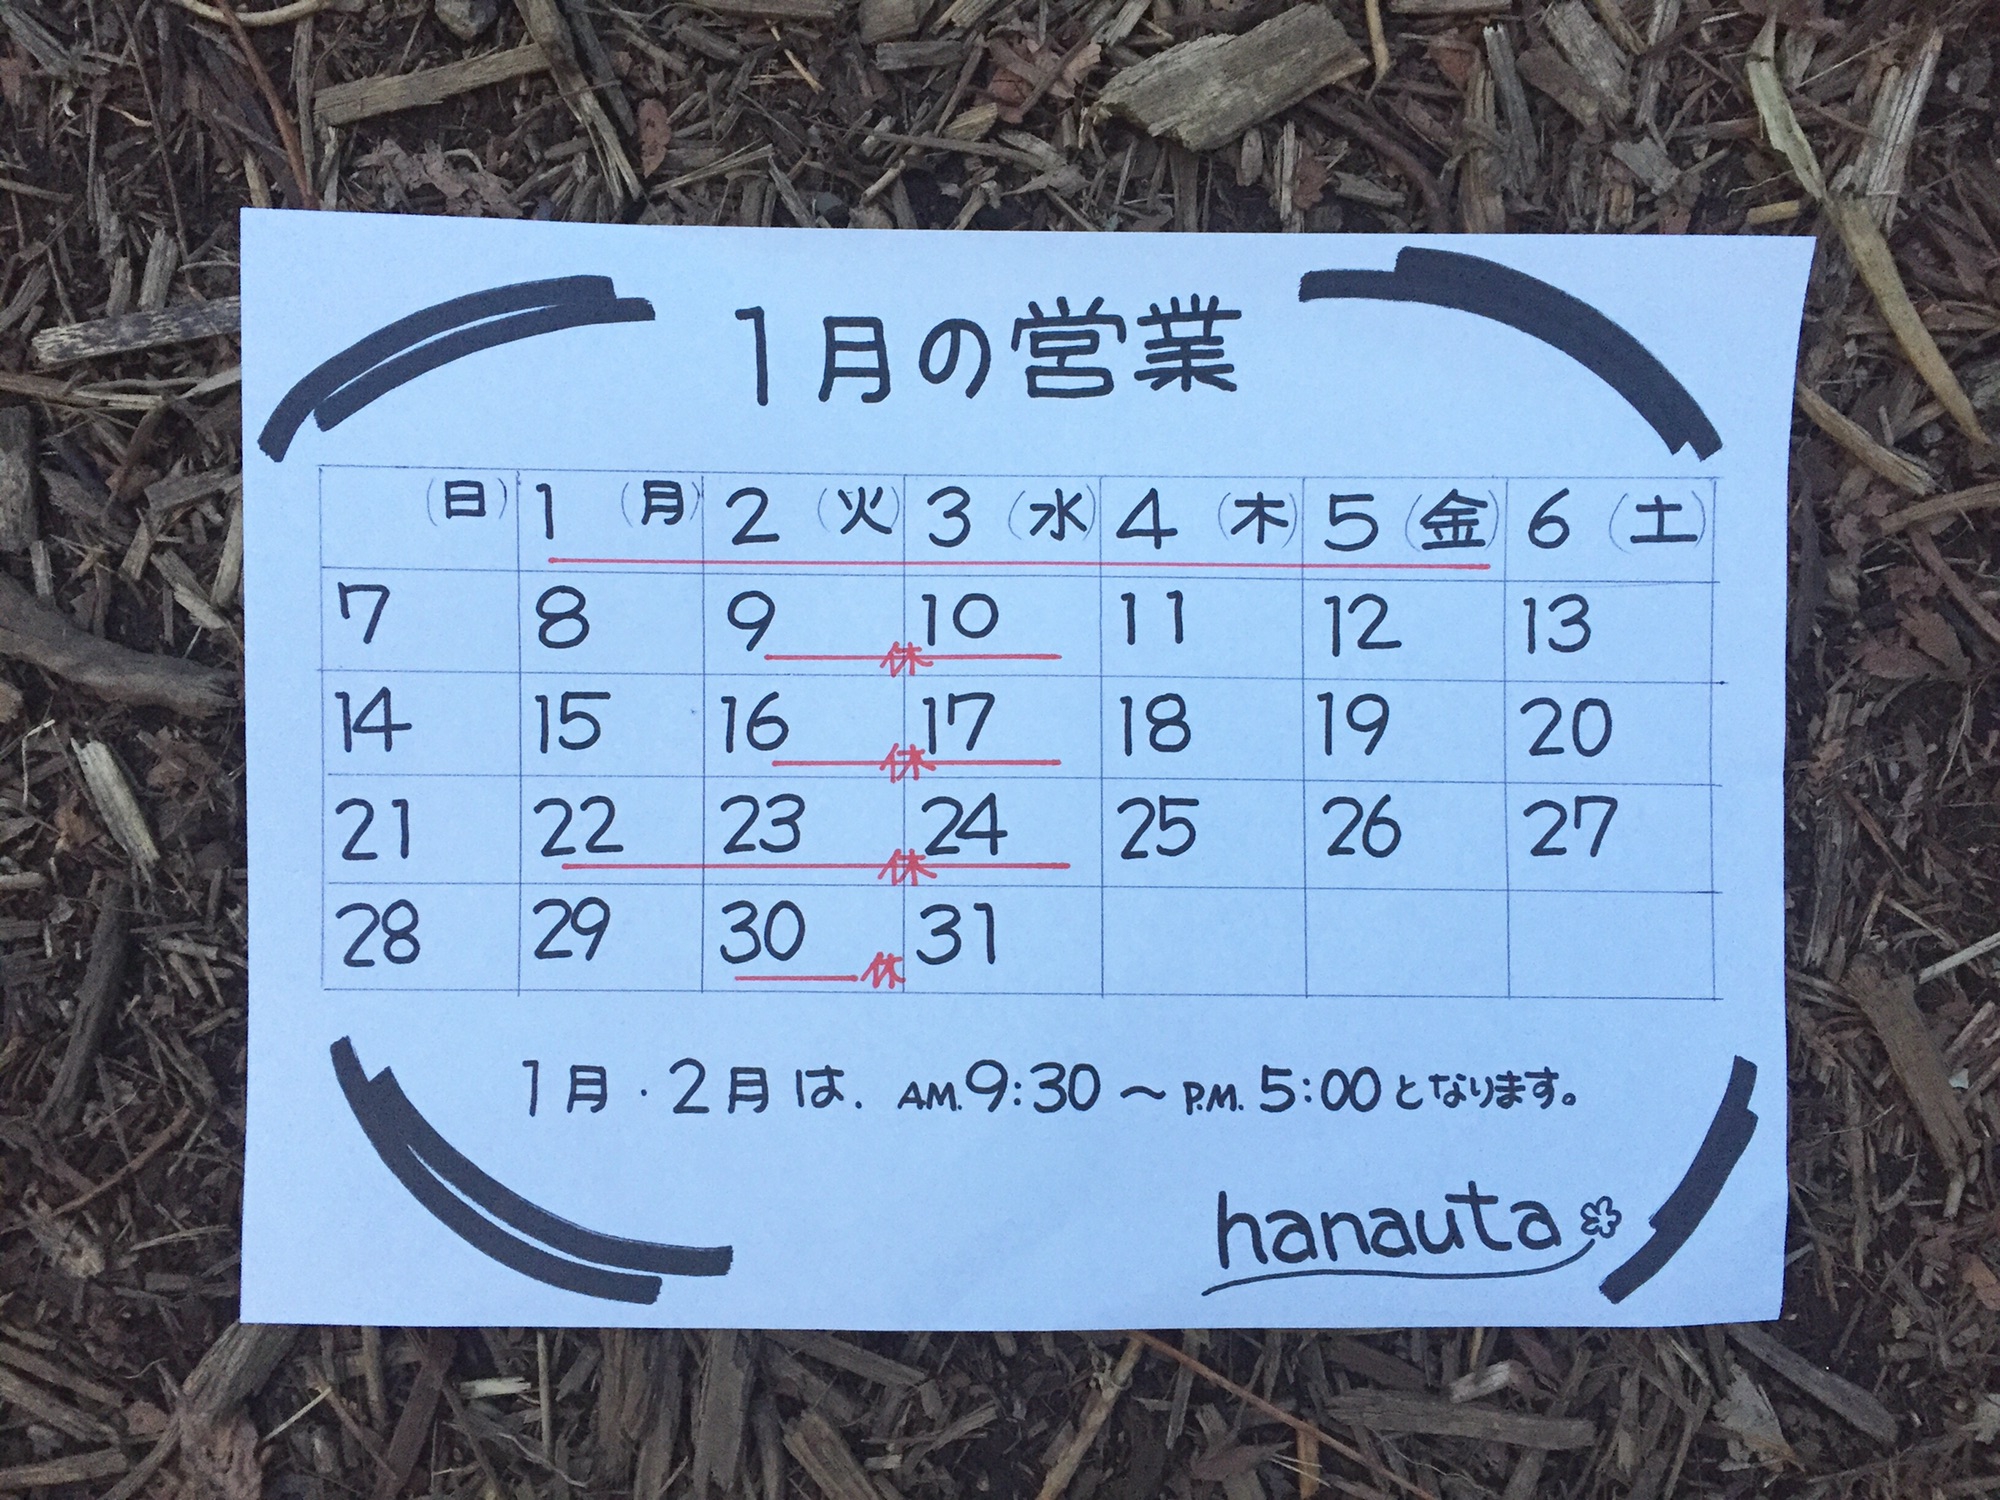 1月の営業
(日) 1 (月) 2 (火) 3 (水) 4 (木) 5 (金) 6 (土)
7 8 9 10 11 12 13
休
14 15 16 17 18 19 20
休
21 22 23 24 25 26 27
休
28 29 30 31
休
1月・2月は. A.M. 9:30 〜 P.M. 5:00となります。
hanauta